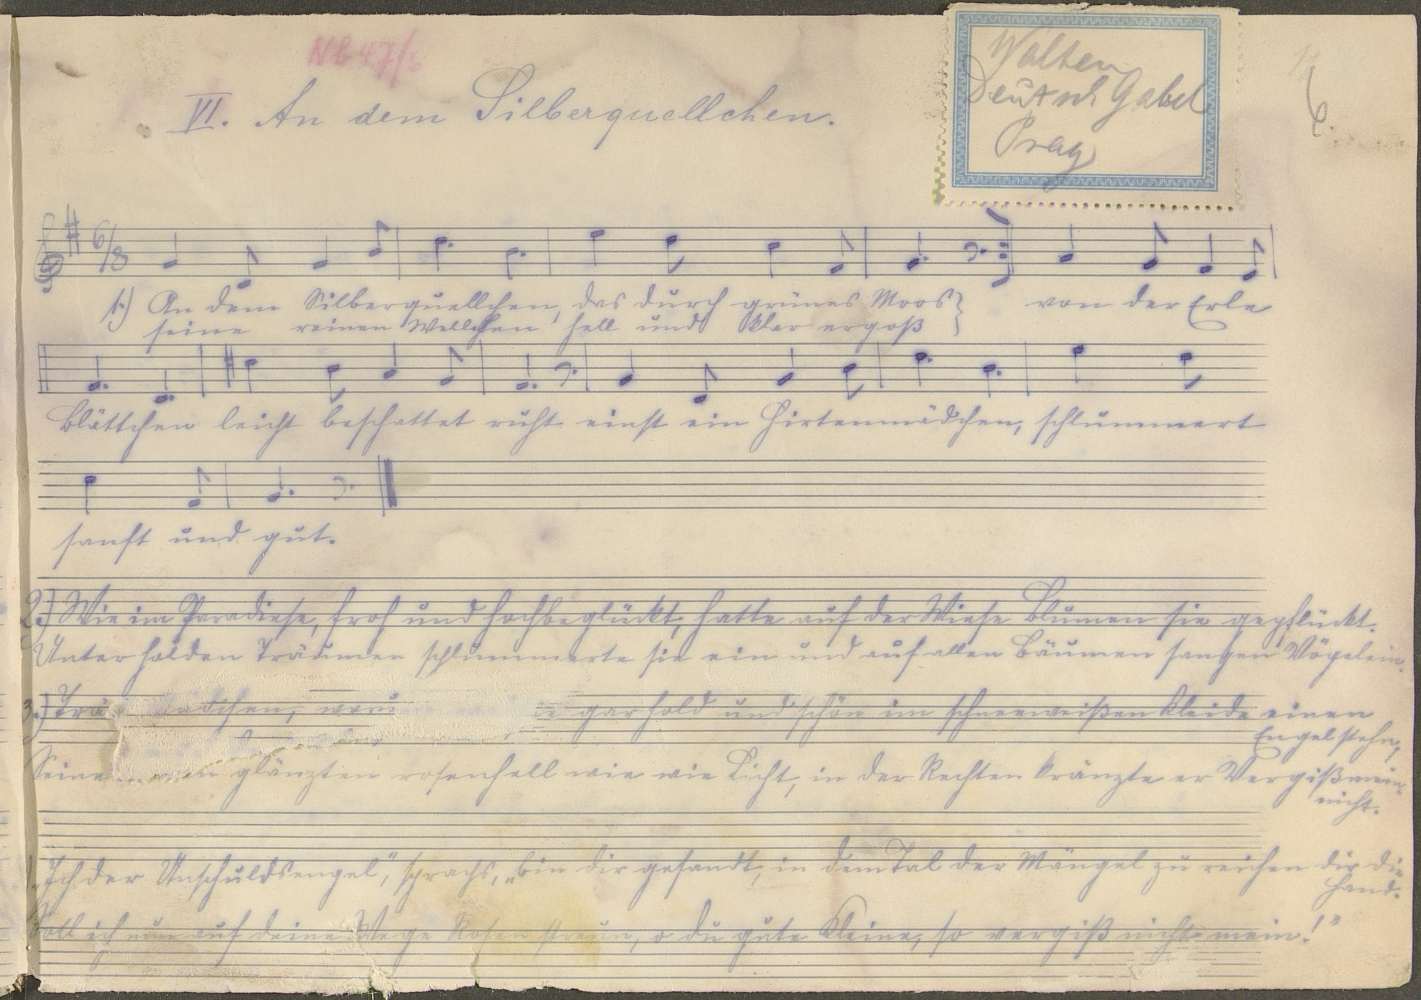 NB 47/6
VI. An dem Silberquellchen.
Walten
Deutsch Gabel
Prag
6.
6/8
1.) An dem Silberquellchen, das durch grünes Moos } von der Erle
seine reinen Wellchen hell und klar ergoß
Blättchen leicht beschattet ruht einst ein Hirtenmädchen, schlummert
sanft und gut.
2.) Wie im Paradiese, froh und hochbeglückt, hatte auf der Wiese Blumen sie gepflückt.
Unter holden Träumen schlummerte sie ein und auf allen Bäumen sangen Vögelein.
3.) gar hold und schön im schneeweißen Kleide einen
Engel stehn,
Seine glänzten rosenhell wie wie Licht, in der Rechten kränzte er Vergißmein-
nicht.
"Ich der Unschuldsengel", sprachs, "bin dir gesandt, in dem Tal der Mängel zu reichen dir die
Hand.
Soll ich nun auf deine Wege Rosen streun, o du gute Kleine, so vergiß nicht mein!"